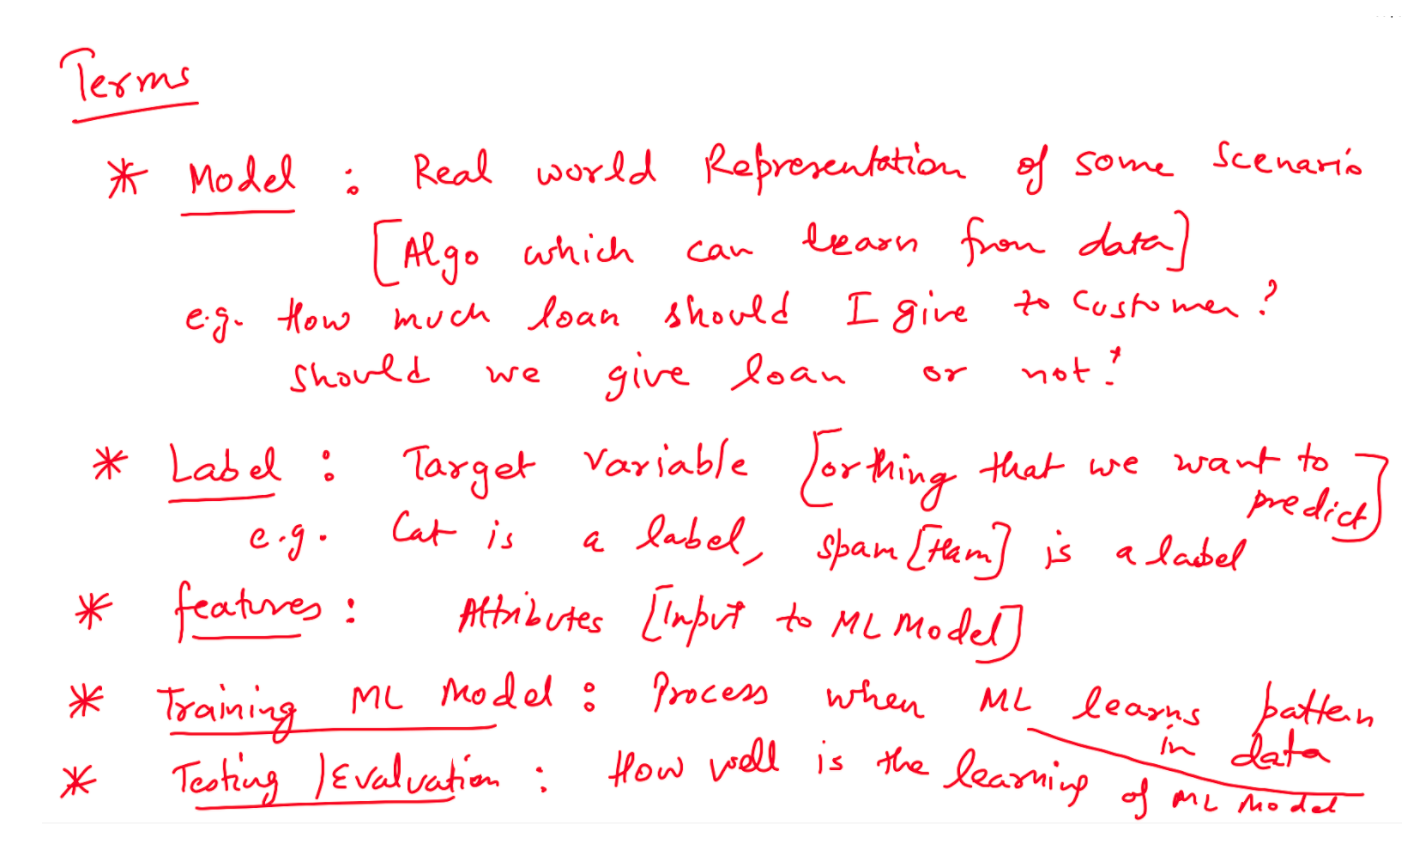 Terms
* Model : Real world Representation of some Scenario
[Algo which can learn from data]
e.g. How much loan should I give to Customer?
Should we give loan or not?
* Label : Target variable [or thing that we want to predict]
e.g. Cat is a label, spam [Ham] is a label
* features : Attributes [Input to ML Model]
* Training ML Model : Process when ML learns pattern in data
* Testing / Evaluation : How well is the learning of ML Model